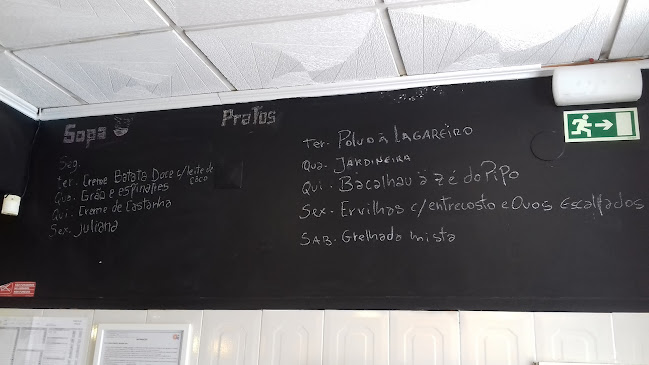 Sopa
Seg.
ter. Creme Batata Doce c/leite de coco
Qua. Grão e espinafres
Qui. Creme de Castanha
Sex. Juliana
Pratos
Ter. Polvo à Lagareiro
Qua. Jardineira
Qui. Bacalhau à zé do Pipo
Sex. Ervilhas c/entrecosto e Ovos Escalfados
SAB. Grelhada mista